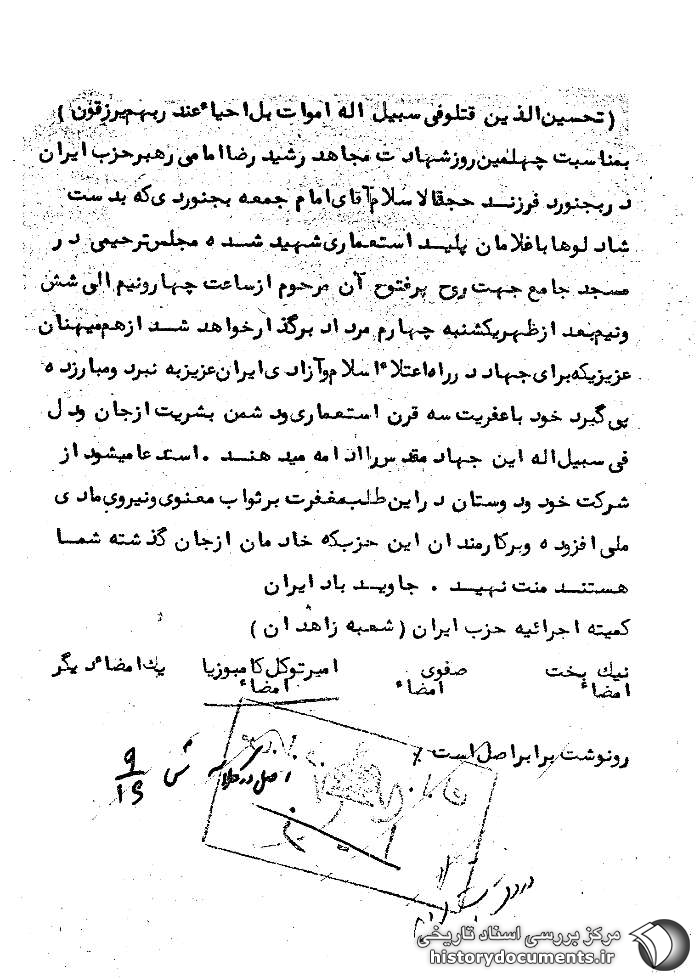 (تحسین‌الذین قتلوفی سبیل اله اموات بل احیاء عند ربهم یرزقون)
بمناسبت چهلمین روز شهادت مجاهد رشید رضا امامی رهبر حزب ایران
در بجنورد فرزند حجةالاسلام آقای امام جمعه بجنوردی که بدست
شادلوها با غلامان پلید استعماری شهید شده مجلس ترحیمی در
مسجد جامع جهت روح پرفتوح آن مرحوم از ساعت چهارونیم الی شش
ونیم بعد از ظهر یکشنبه چهارم مرداد برگذار خواهد شد از هم‌میهنان
عزیزیکه برای جهاد در راه اعتلاء اسلام وآزادی ایران عزیز به نبرد ومبارزه
پی‌گیرد خود با عفریت سه قرن استعماری ودشمن بشریت از جان ودل
فی سبیل اله این جهاد مقدس را ادامه میدهند . استدعا میشود از
شرکت خود ودوستان در این طلب مغفرت بر ثواب معنوی ونیروی مادی
ملی افزوده وبرکارمندان این حزبکه خادمان از جان گذشته شما
هستند منت نهید . جاوید باد ایران
کمیته اجرائیه حزب ایران (شعبه زاهدان)
نیك بخت صفوی امیر توکل کامبوزیا یك امضاء دیگر
امضاء امضاء امضاء
رونوشت برابر اصل است ٪
اصل در
۹
۱۶
مرکز بررسی اسناد تاریخی
historydocuments.ir